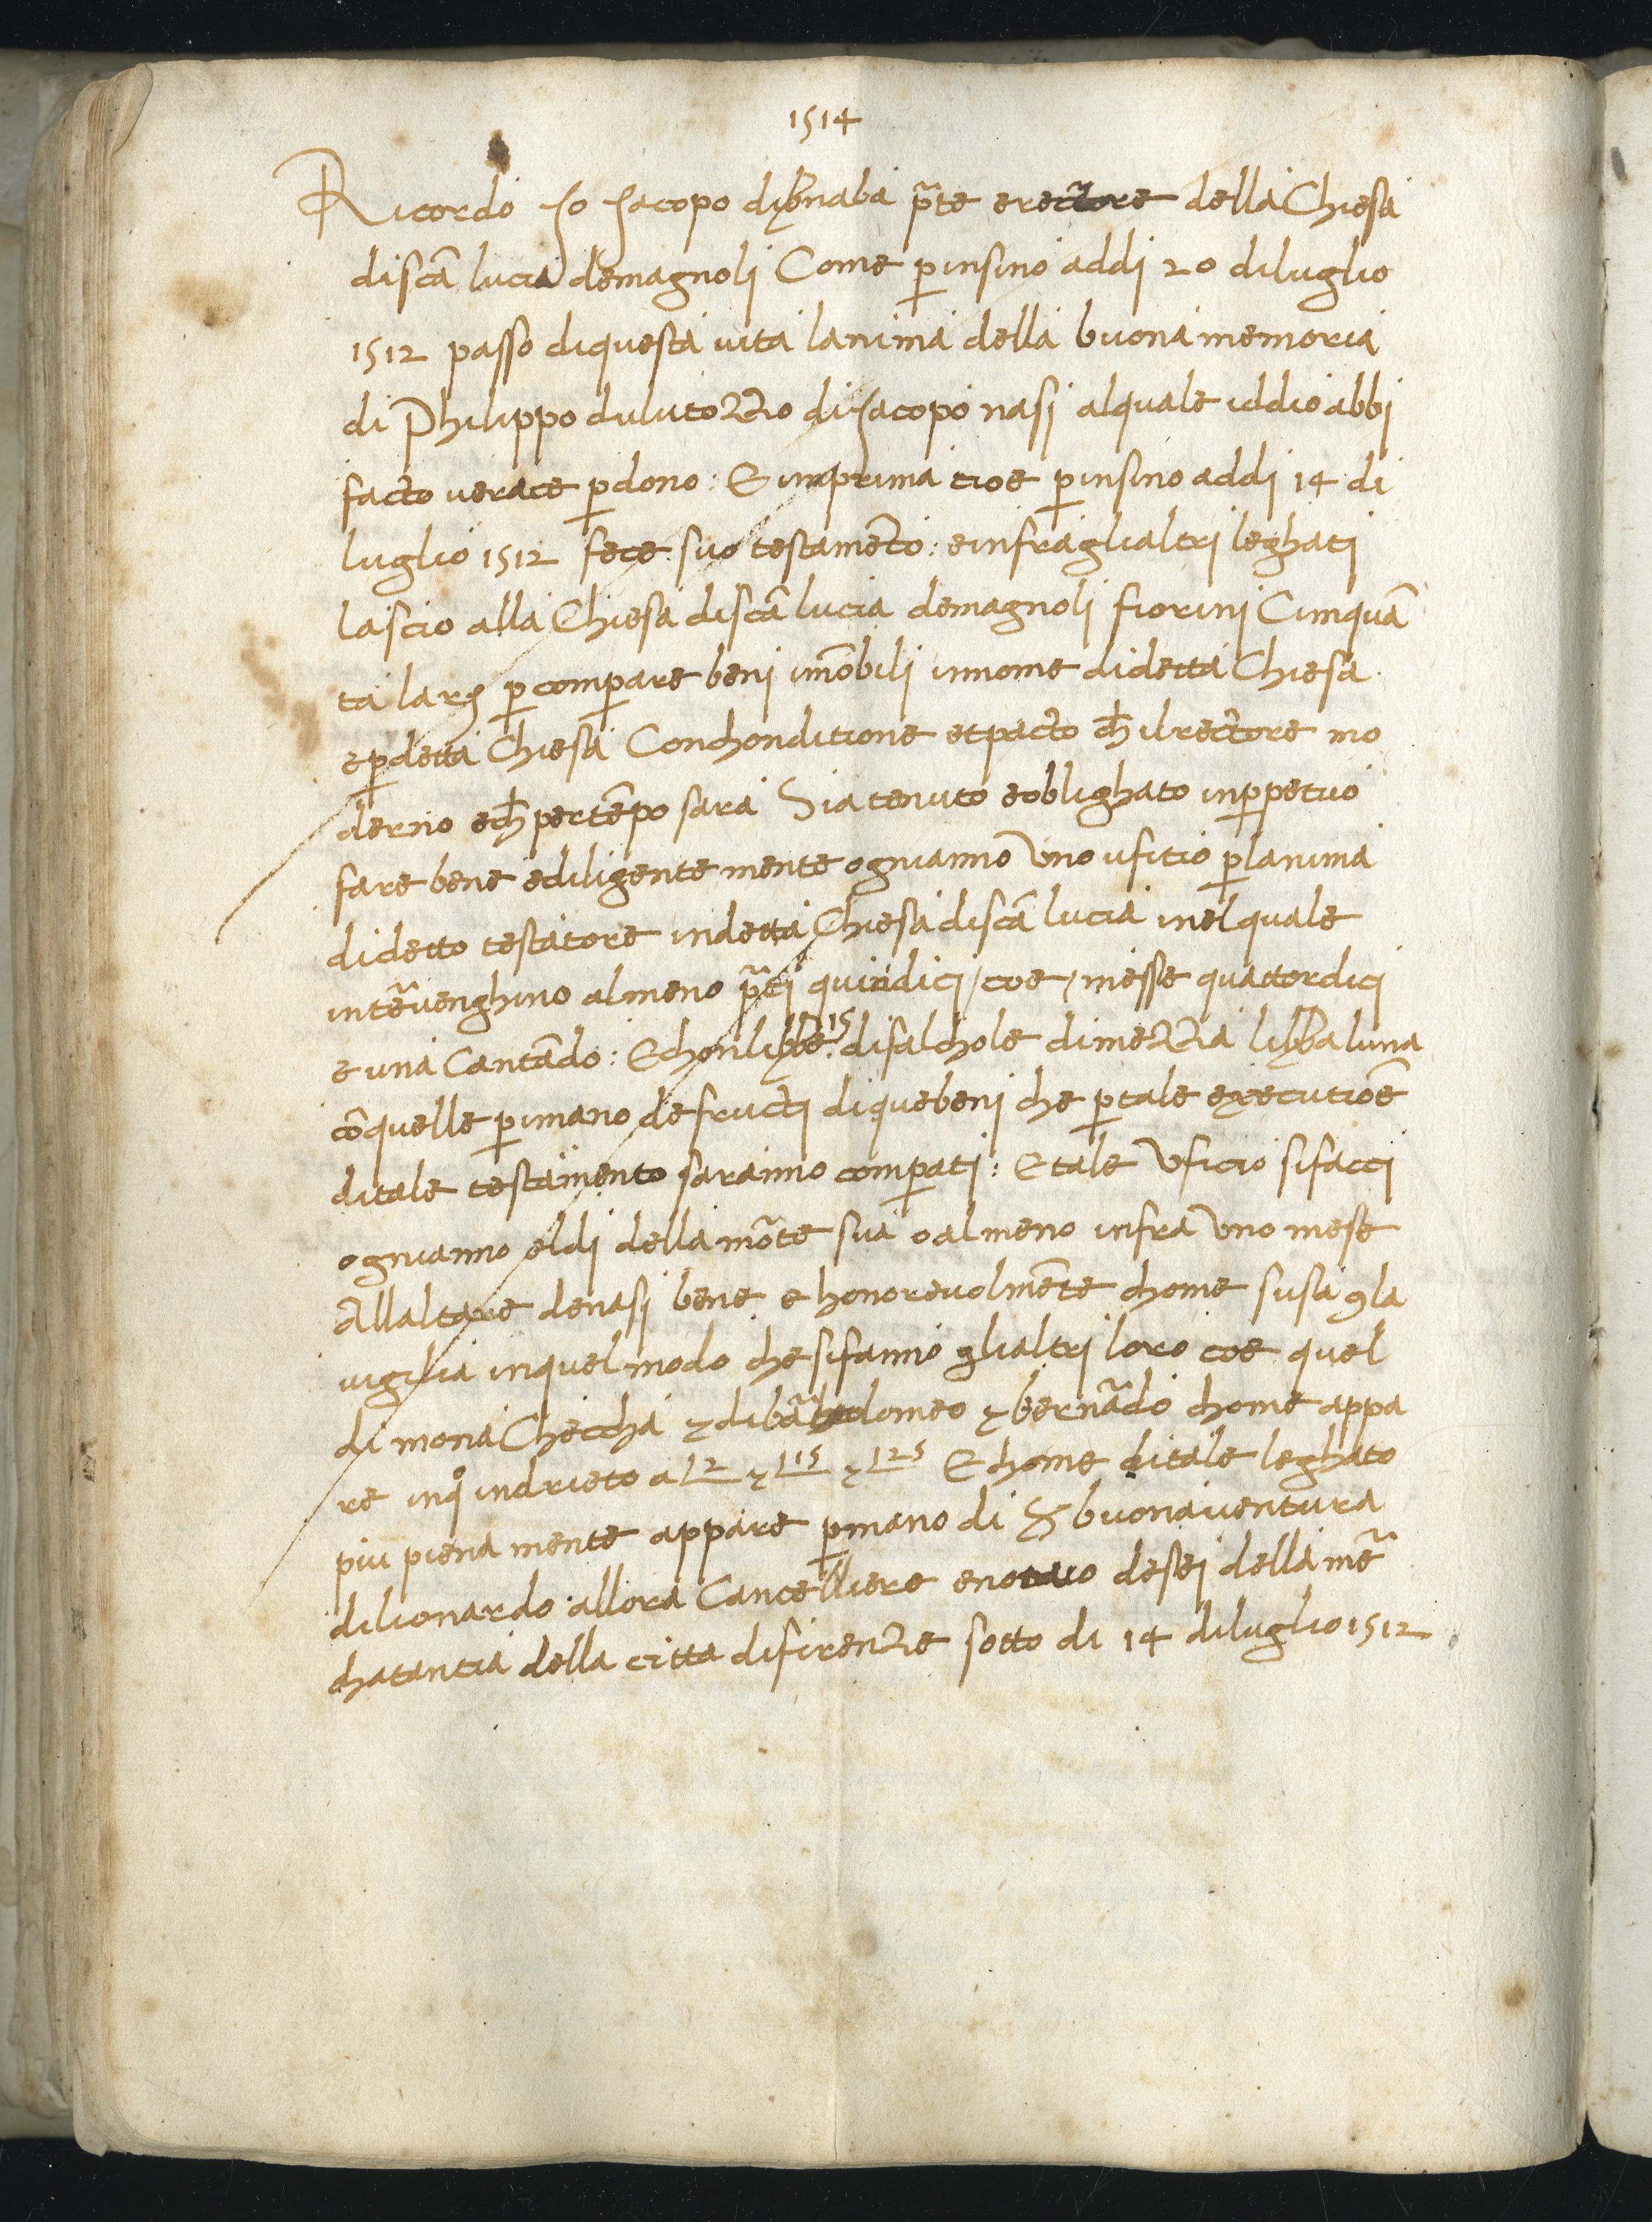 1514
Ricordo Io Jacopo di b̄naba p̄te e rectore della Chiesa
di scā lucia de magnoli Come p̱insino addi 20 di luglio
1512 passo di questa vita lanima della buona memoria
di Philippo di lutozzo di Jacopo nasi al quale iddio abbi
facto verace p̱dono: E in prima cioe p̱insino addi 14 di
luglio 1512 fece suo testamēto: e infra gli altri leghati
lascio alla Chiesa di scā lucia de magnoli fiorini Cinquā
ta larg p̱ comp̱are beni īmobili in nome di detta Chiesa
e p̱ detta Chiesa Con chonditione et pacto ch̄ il rectore mo
derno e ch̄ per tēpo sara Sia tenuto e oblighato in p̱petuo
fare bene e diligente mente ogni anno Uno ufitio p̱ lanima
di detto testatore in detta Chiesa di scā lucia inel quale
intēvenghino almeno p̄ti quindici / coe / messe quattordici
e una Cantādo: E chon libbe 15 di falchole di mezza libba luna
cō quelle p̱imano de fructi di que beni che p̱ tale executiōe
di tale testamento saranno comp̱ati: E tale Uficio si facci
ogni anno el di della mōte sua o almeno infra Uno mese
Allaltare de nasi bene e honorevolmēte chome susa ꝯ la
vigilia in quel modo che si fanno gli altri loro coe quel
di mona Checcha ⁊ di bātolomeo ⁊ bernādo chome appa
re in qº indrieto a 12 ⁊ 115 ⁊ 125 E chome di tale leghato
piu piena mente appare p̱ mano di S buonaventura
di lionardo allora Cancelliere e notaio de sei della mē
chatantia della citta di firenze sotto di 14 di luglio 1512